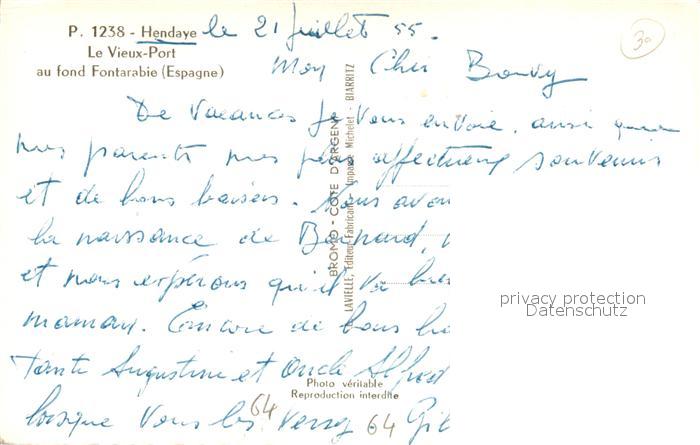 P. 1238 - Hendaye le 21 juillet 55.
30
Le Vieux-Port
au fond Fontarabie (Espagne)
Mon Cher
De Vacances je Vous envoie, ainsi que
mes parents mes plus affectueux souvenirs
et de bons baisers. Nous avon
la naissance de Bernard,
et nous espérons qu'il va bie
maman. Encore de bons
Tante Augustine et Oncle Alfred
lorsque Vous les verrez. Gil
BROMO - COTE D'ARGENT
LAVIELLE, Editeur-Fabricant - Impasse Michelet - BIARRITZ
privacy protection
Datenschutz
Photo véritable
Reproduction interdite
64
64